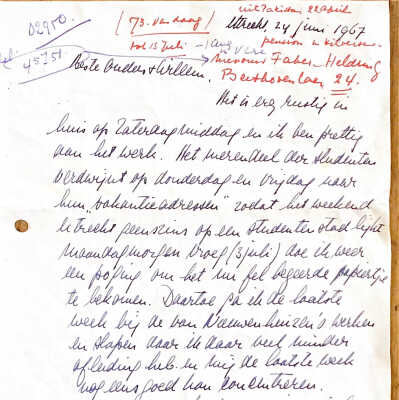 02950.
45751
(73. van haag)
Utrecht, 24 juni 1967
tot 15 Juli
pension in Hilversum.
Mevrouw Faber-Heldring
Beste Ouders + Willem,
Beethovenlaan 24.
Het is erg rustig in
huis op Zaterdagmiddag en ik ben prettig
aan het werk. Het merendeel der studenten
verdwijnt op donderdag en vrijdag naar
hun "vakantieadressen" zodat het weekend
Utrecht geenszins op een studentenstad lijkt
maandagmorgen vroeg (3 juli) doe ik weer
een poging om het nu fel begeerde papiertje
te bekomen. Daartoe ga ik de laatste
week bij de van Nieuwenhuizen's werken
en slapen daar ik daar veel minder
afleiding heb en mij de laatste week
nog eens goed kan concentreren.